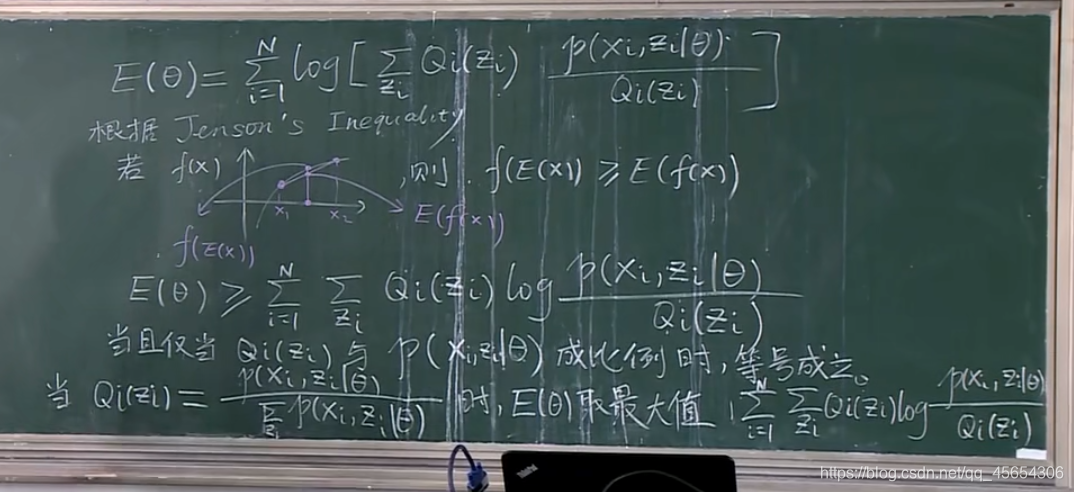 E(θ)= ∑_{i=1}^{N} log[ ∑_{zi} Qi(zi) p(xi,zi|θ) / Qi(zi) ]
根据 Jenson's Inequality
若 f(x) x1 x2 ,则 f(E(x)) ⩾ E(f(x))
E(f(x))
f(E(x))
E(θ) ⩾ ∑_{i=1}^{N} ∑_{zi} Qi(zi) log p(xi,zi|θ) / Qi(zi)
当且仅当 Qi(zi) 与 p(xi,zi|θ) 成比例时,等号成立。
当 Qi(zi) = p(xi,zi|θ) / ∑_{zi} p(xi,zi|θ) 时, E(θ)取最大值 ∑_{i=1}^{N} ∑_{zi} Qi(zi) log p(xi,zi|θ) / Qi(zi)
https://blog.csdn.net/qq_45654306